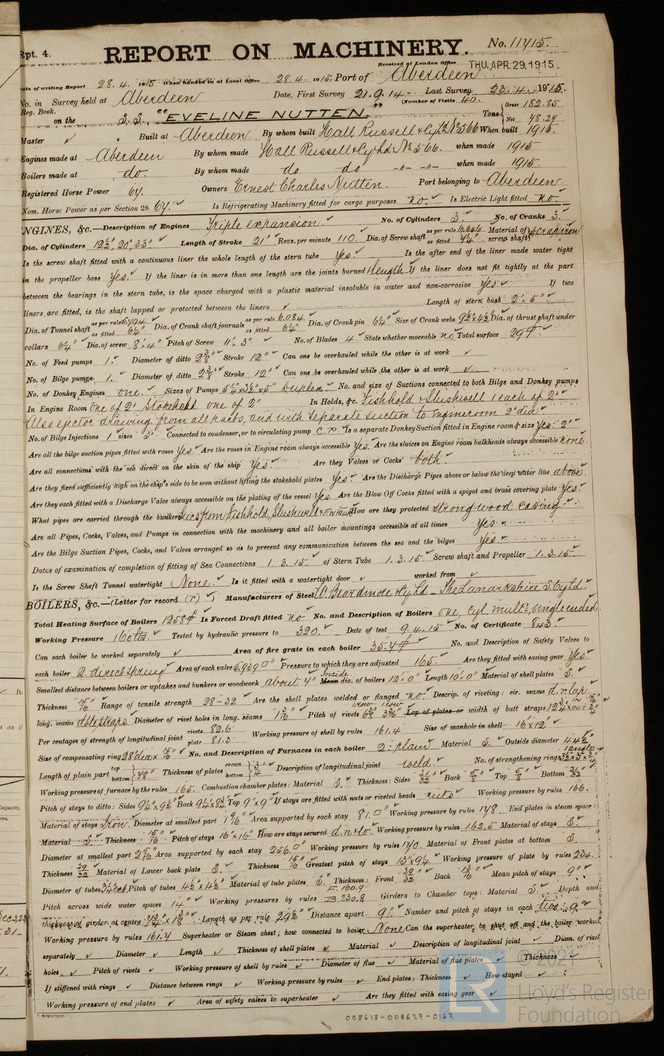 Rpt. 4.
REPORT ON MACHINERY.
No. 11415.
Received at London Office THU. APR. 29. 1915.
Date of writing Report 28.4.1915 When handed in at Local Office 28.4.1915, Port of Aberdeen
No. in Reg. Book. Survey held at Aberdeen Date, First Survey 21.9.14 Last Survey 23.4.1915.
(Number of Visits 40.
on the S.S. "EVELINE NUTTEN" Tons Gross 152.85 Net 48.24
Master Built at Aberdeen By whom built Hall Russell & Cy Ld No 566 When built 1915.
Engines made at Aberdeen By whom made Hall Russell & Cy Ld No 566. when made 1915
Boilers made at do. By whom made do do when made 1915.
Registered Horse Power 64. Owners Ernest Charles Nutten. Port belonging to Aberdeen
Nom. Horse Power as per Section 28 64. Is Refrigerating Machinery fitted for cargo purposes no. Is Electric Light fitted no.
ENGINES, &c.—Description of Engines Triple expansion. No. of Cylinders 3. No. of Cranks 3.
Dia. of Cylinders 12½" 20", 33" Length of Stroke 21" Revs. per minute 110 Dia. of Screw shaft as per rule as fitted Material of screw shaft scrap iron
Is the screw shaft fitted with a continuous liner the whole length of the stern tube Yes. Is the after end of the liner made water tight
in the propeller boss Yes. If the liner is in more than one length are the joints burned 1 length. If the liner does not fit tightly at the part
between the bearings in the stern tube, is the space charged with a plastic material insoluble in water and non-corrosive Yes If two
liners are fitted, is the shaft lapped or protected between the liners Length of stern bush 2'.5"
Dia. of Tunnel shaft as per rule as fitted 6¼" Dia. of Crank shaft journals as per rule 6.084 as fitted 6¼" Dia. of Crank pin 6¼" Size of Crank webs Dia. of thrust shaft under
collars 6¼" Dia. of screw 8'.4" Pitch of Screw 11'.3" No. of Blades 4. State whether moveable no Total surface 29
No. of Feed pumps 1. Diameter of ditto Stroke 12" Can one be overhauled while the other is at work
No. of Bilge pumps 1. Diameter of ditto Stroke 12" Can one be overhauled while the other is at work
No. of Donkey Engines one. Sizes of Pumps Duplex No. and size of Suctions connected to both Bilge and Donkey pumps
In Engine Room one of 2" Stokehold one of 2" In Holds, &c. Fishhold, Slushwell 1 each of 2"
Also ejector drawing from all parts, and with separate suction to Engineroom 2" dia.
No. of Bilge Injections 1 sizes 3" Connected to condenser, or to circulating pump C.P. Is a separate Donkey Suction fitted in Engine room & size Yes: 2"
Are all the bilge suction pipes fitted with roses Yes Are the roses in Engine room always accessible Yes. Are the sluices on Engine room bulkheads always accessible none
Are all connections with the sea direct on the skin of the ship Yes. Are they Valves or Cocks both.
Are they fixed sufficiently high on the ship's side to be seen without lifting the stokehold plates Yes Are the Discharge Pipes above or below the deep water line above.
Are they each fitted with a Discharge Valve always accessible on the plating of the vessel Yes Are the Blow Off Cocks fitted with a spigot and brass covering plate Yes
What pipes are carried through the bunkers Sucs from Fishhold, Slushwell How are they protected strong wood casing
Are all Pipes, Cocks, Valves, and Pumps in connection with the machinery and all boiler mountings accessible at all times Yes
Are the Bilge Suction Pipes, Cocks, and Valves arranged so as to prevent any communication between the sea and the bilges Yes
Dates of examination of completion of fitting of Sea Connections 1.3.15 of Stern Tube 1.3.15 Screw shaft and Propeller 1.3.15
Is the Screw Shaft Tunnel watertight None. Is it fitted with a watertight door worked from
BOILERS, &c.—(Letter for record (r) Manufacturers of Steel W. Beardmore & Cy Ld. The Lanarkshire S. Cy Ld.
Total Heating Surface of Boilers 1255 Is Forced Draft fitted no No. and Description of Boilers one, cyl. mult. single ended
Working Pressure 160 lbs Tested by hydraulic pressure to 320. Date of test 9.4.15 No. of Certificate 843.
Can each boiler be worked separately Area of fire grate in each boiler 35.4 No. and Description of Safety Valves to
each boiler 2 direct spring Area of each valve Pressure to which they are adjusted 165. Are they fitted with easing gear Yes
Smallest distance between boilers or uptakes and bunkers or woodwork about 4" inside dia. of boilers Length 10'.0" Material of shell plates S.
Thickness Range of tensile strength 28-32 Are the shell plates welded or flanged no. Descrip. of riveting: cir. seams d.r. lap
long. seams Diameter of rivet holes in long. seams Pitch of rivets Lap of plates or width of butt straps
Per centages of strength of longitudinal joint rivets 82.6 plate 81.5 Working pressure of shell by rules 161.4 Size of manhole in shell 16"x12"
Size of compensating ring No. and Description of Furnaces in each boiler 2: plain Material S. Outside diameter
Length of plain part top bottom Thickness of plates crown bottom Description of longitudinal joint weld No. of strengthening rings
Working pressure of furnace by the rules 165. Combustion chamber plates: Material S. Thickness: Sides Back Top Bottom
Pitch of stays to ditto: Sides Back Top 9"x9" If stays are fitted with nuts or riveted heads nuts Working pressure by rules 166.
Material of stays Iron. Diameter at smallest part Area supported by each stay 81.0 Working pressure by rules 178. End plates in steam space:
Material S Thickness Pitch of stays 16"x16" How are stays secured Working pressure by rules 162.5 Material of stays S.
Diameter at smallest part Area supported by each stay 256.0 Working pressure by rules 170. Material of Front plates at bottom S.
Thickness Material of Lower back plate S. Thickness Greatest pitch of stays Working pressure of plate by rules 234.
Diameter of tubes Pitch of tubes Material of tube plates S. Thickness: Front Back Mean pitch of stays 9"
Pitch across wide water spaces 14" Working pressures by rules Girders to Chamber tops: Material S. Depth and
thickness of girder at centre Length as per rule Distance apart 9" Number and pitch of stays in each
Working pressure by rules 161.4 Superheater or Steam chest; how connected to boiler None Can the superheater be shut off and the boiler worked
separately Diameter Length Thickness of shell plates Material Description of longitudinal joint Diam. of rivet
holes Pitch of rivets Working pressure of shell by rules Diameter of flue Material of flue plates Thickness
If stiffened with rings Distance between rings Working pressure by rules End plates: Thickness How stayed
Working pressure of end plates Area of safety valves to superheater Are they fitted with easing gear
© 2021
LR
Lloyd's Register
Foundation
008618-008627-0169